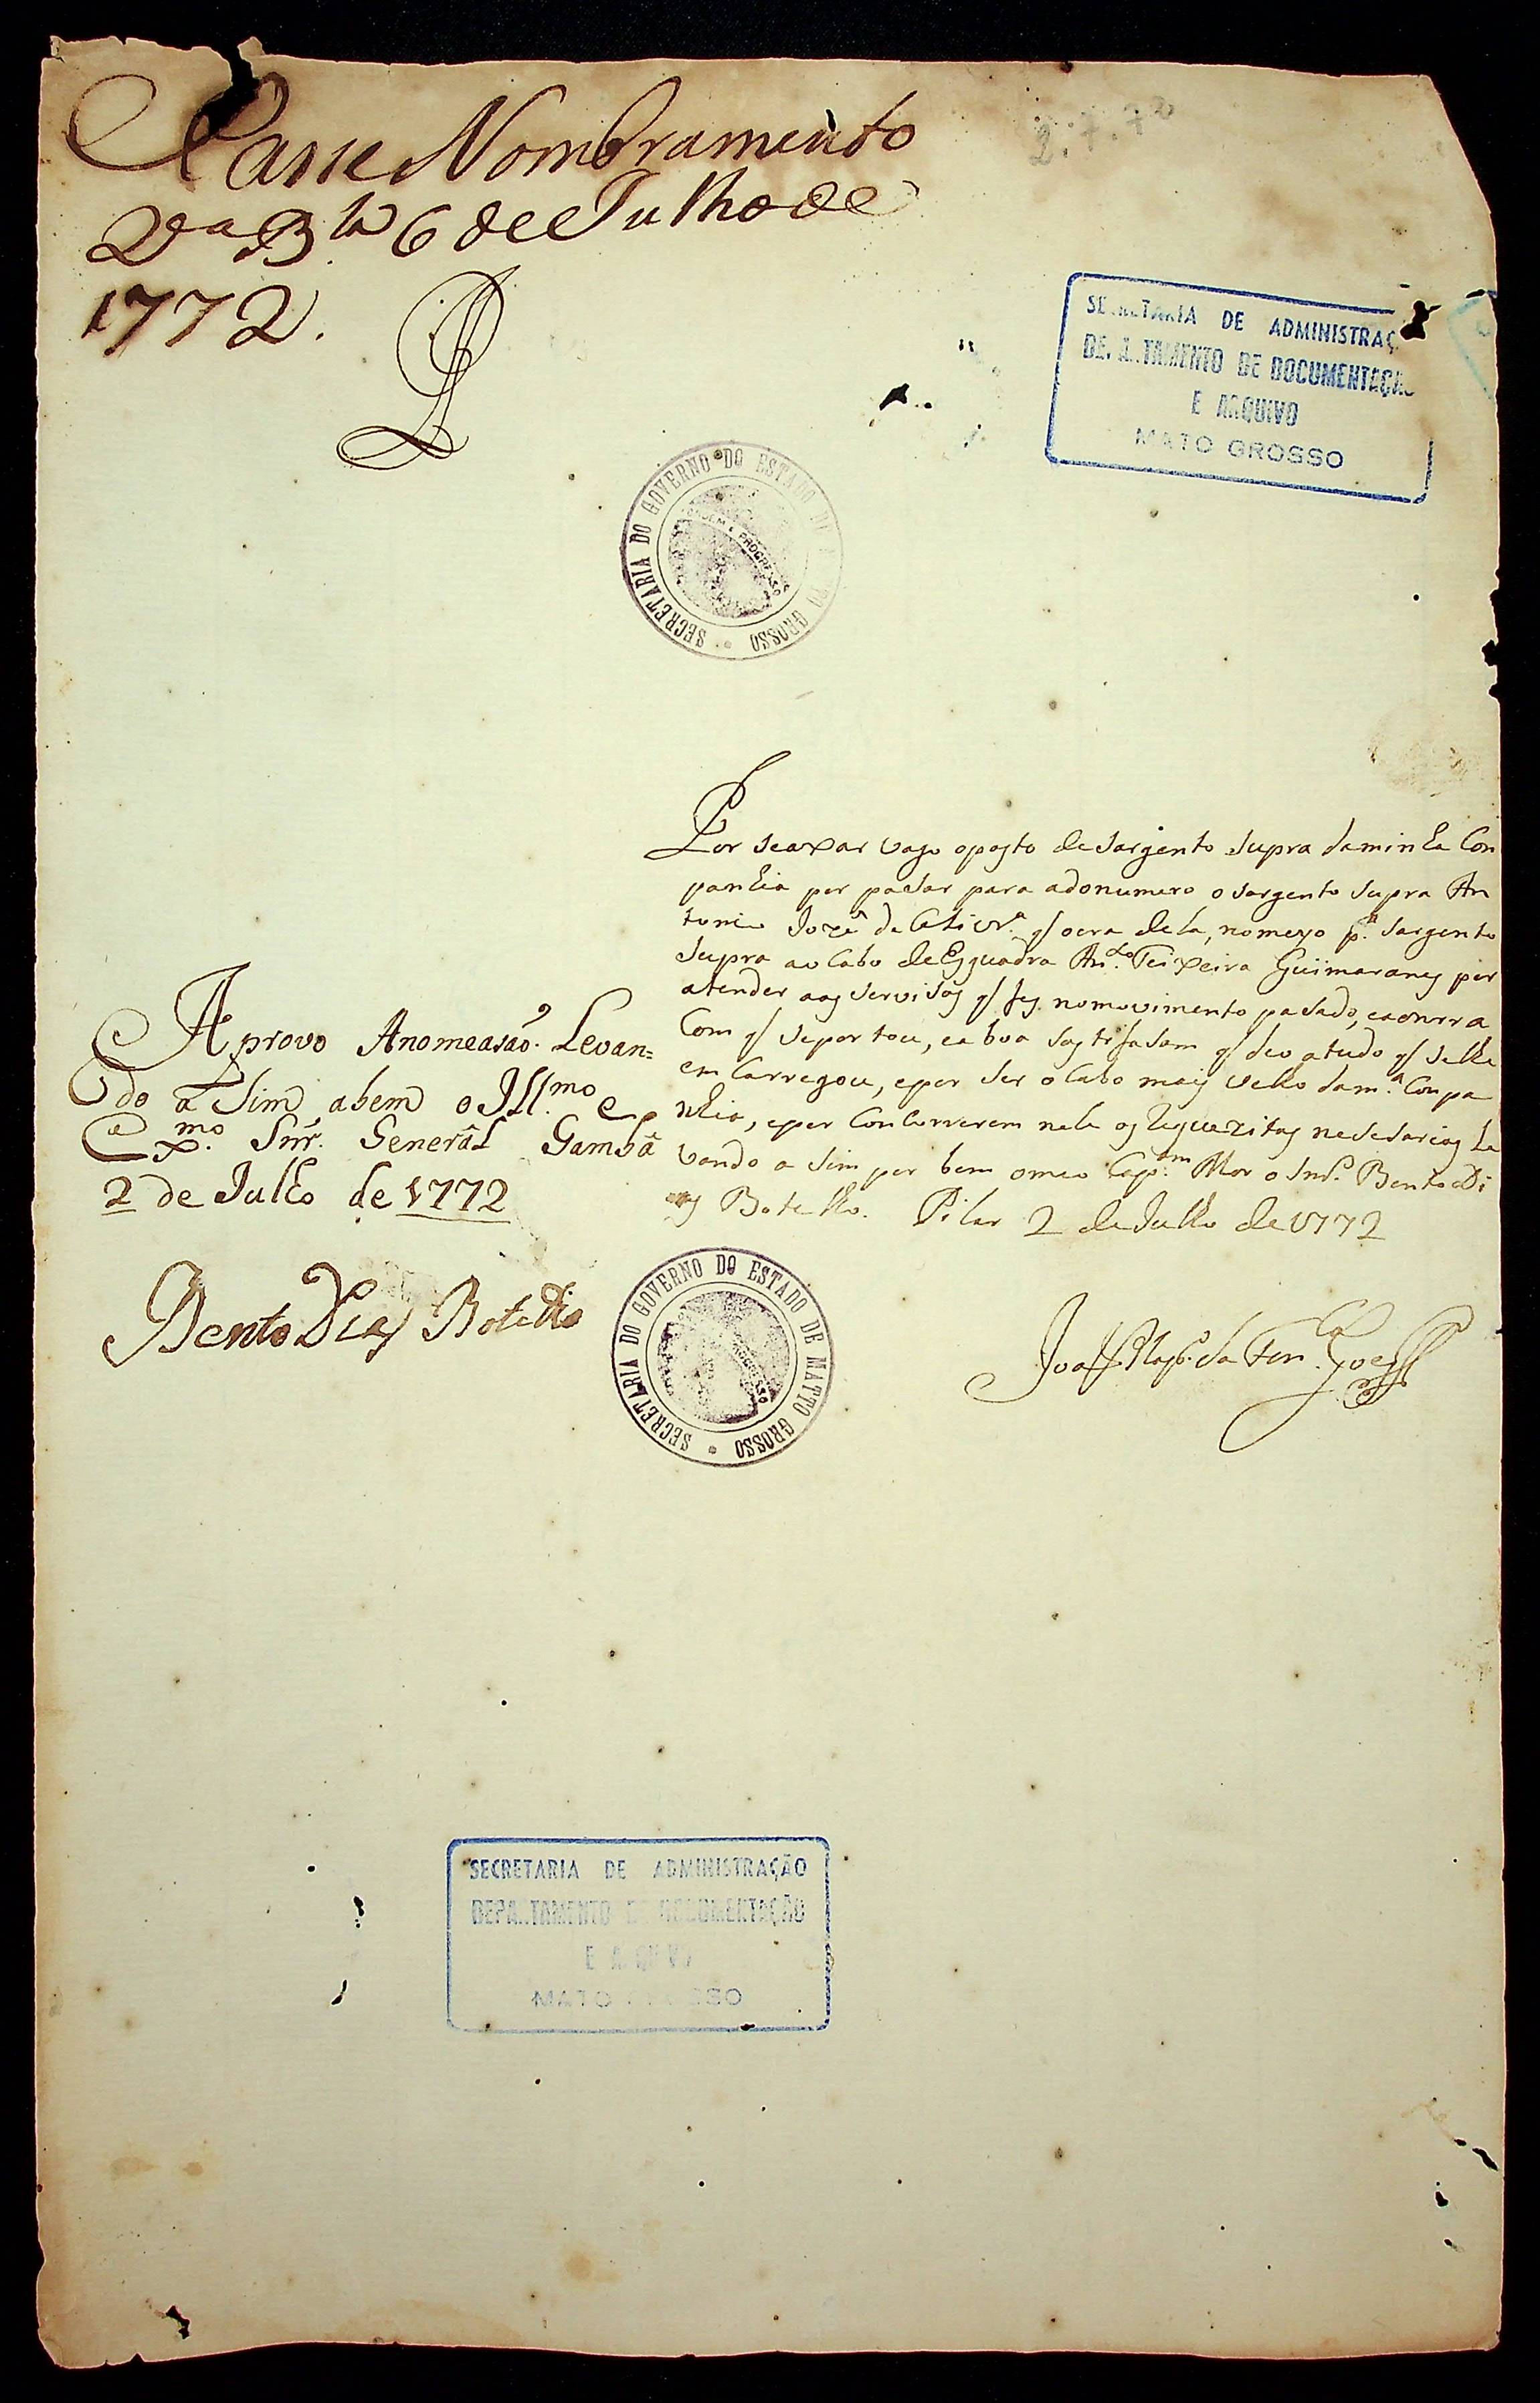 Passe Nombramento
Va B.la 6 de Julho de
1772.
2.7.72
SECRETARIA DE ADMINISTRAÇ
DEPARTAMENTO DE DOCUMENTAÇÃO
E ARQUIVO
MATO GROSSO
SECRETARIA DO GOVERNO DO ESTADO DE MATTO GROSSO
ORDEM E PROGRESSO
Por seaxar vago oposto de Sargento Supra daminha Con
panhia por pasar para adonumero o sargento supra An
tonio Jozê de Olivr.a q̃ oera dela, nomeyo p.a Sargento
Supra ao Cabo de Esquadra An.to Teixeira Guimaraens por
atender aos servisos q̃ fez nomovimento pasado, eaonrra
Com q̃ seportou, ea boa sastisfasam q̃ deo atudo q̃ selhe
em Carregou, epor ser o Cabo mais velho dam.a Conpa
nhia, epor Concorrerem nele os Requezitos nesesarios Le
vando a sim por bem omeo Cap.am Mor o Snr. Bento Di
as Botelho. Pilar 2 de Julho de 1772
Aprovo Anomeasão. Levan=
do a Sim abem o Ill.mo e
Ex.mo Snr. Generâl Gambâ
2 de Julho de 1772
Bento Dias Botelho
SECRETARIA DO GOVERNO DO ESTADO DE MATTO GROSSO
PROGRESSO
SECRETARIA DE ADMINISTRAÇÃO
DEPARTAMENTO DE DOCUMENTAÇÃO
E ARQUIVO
MATO GROSSO